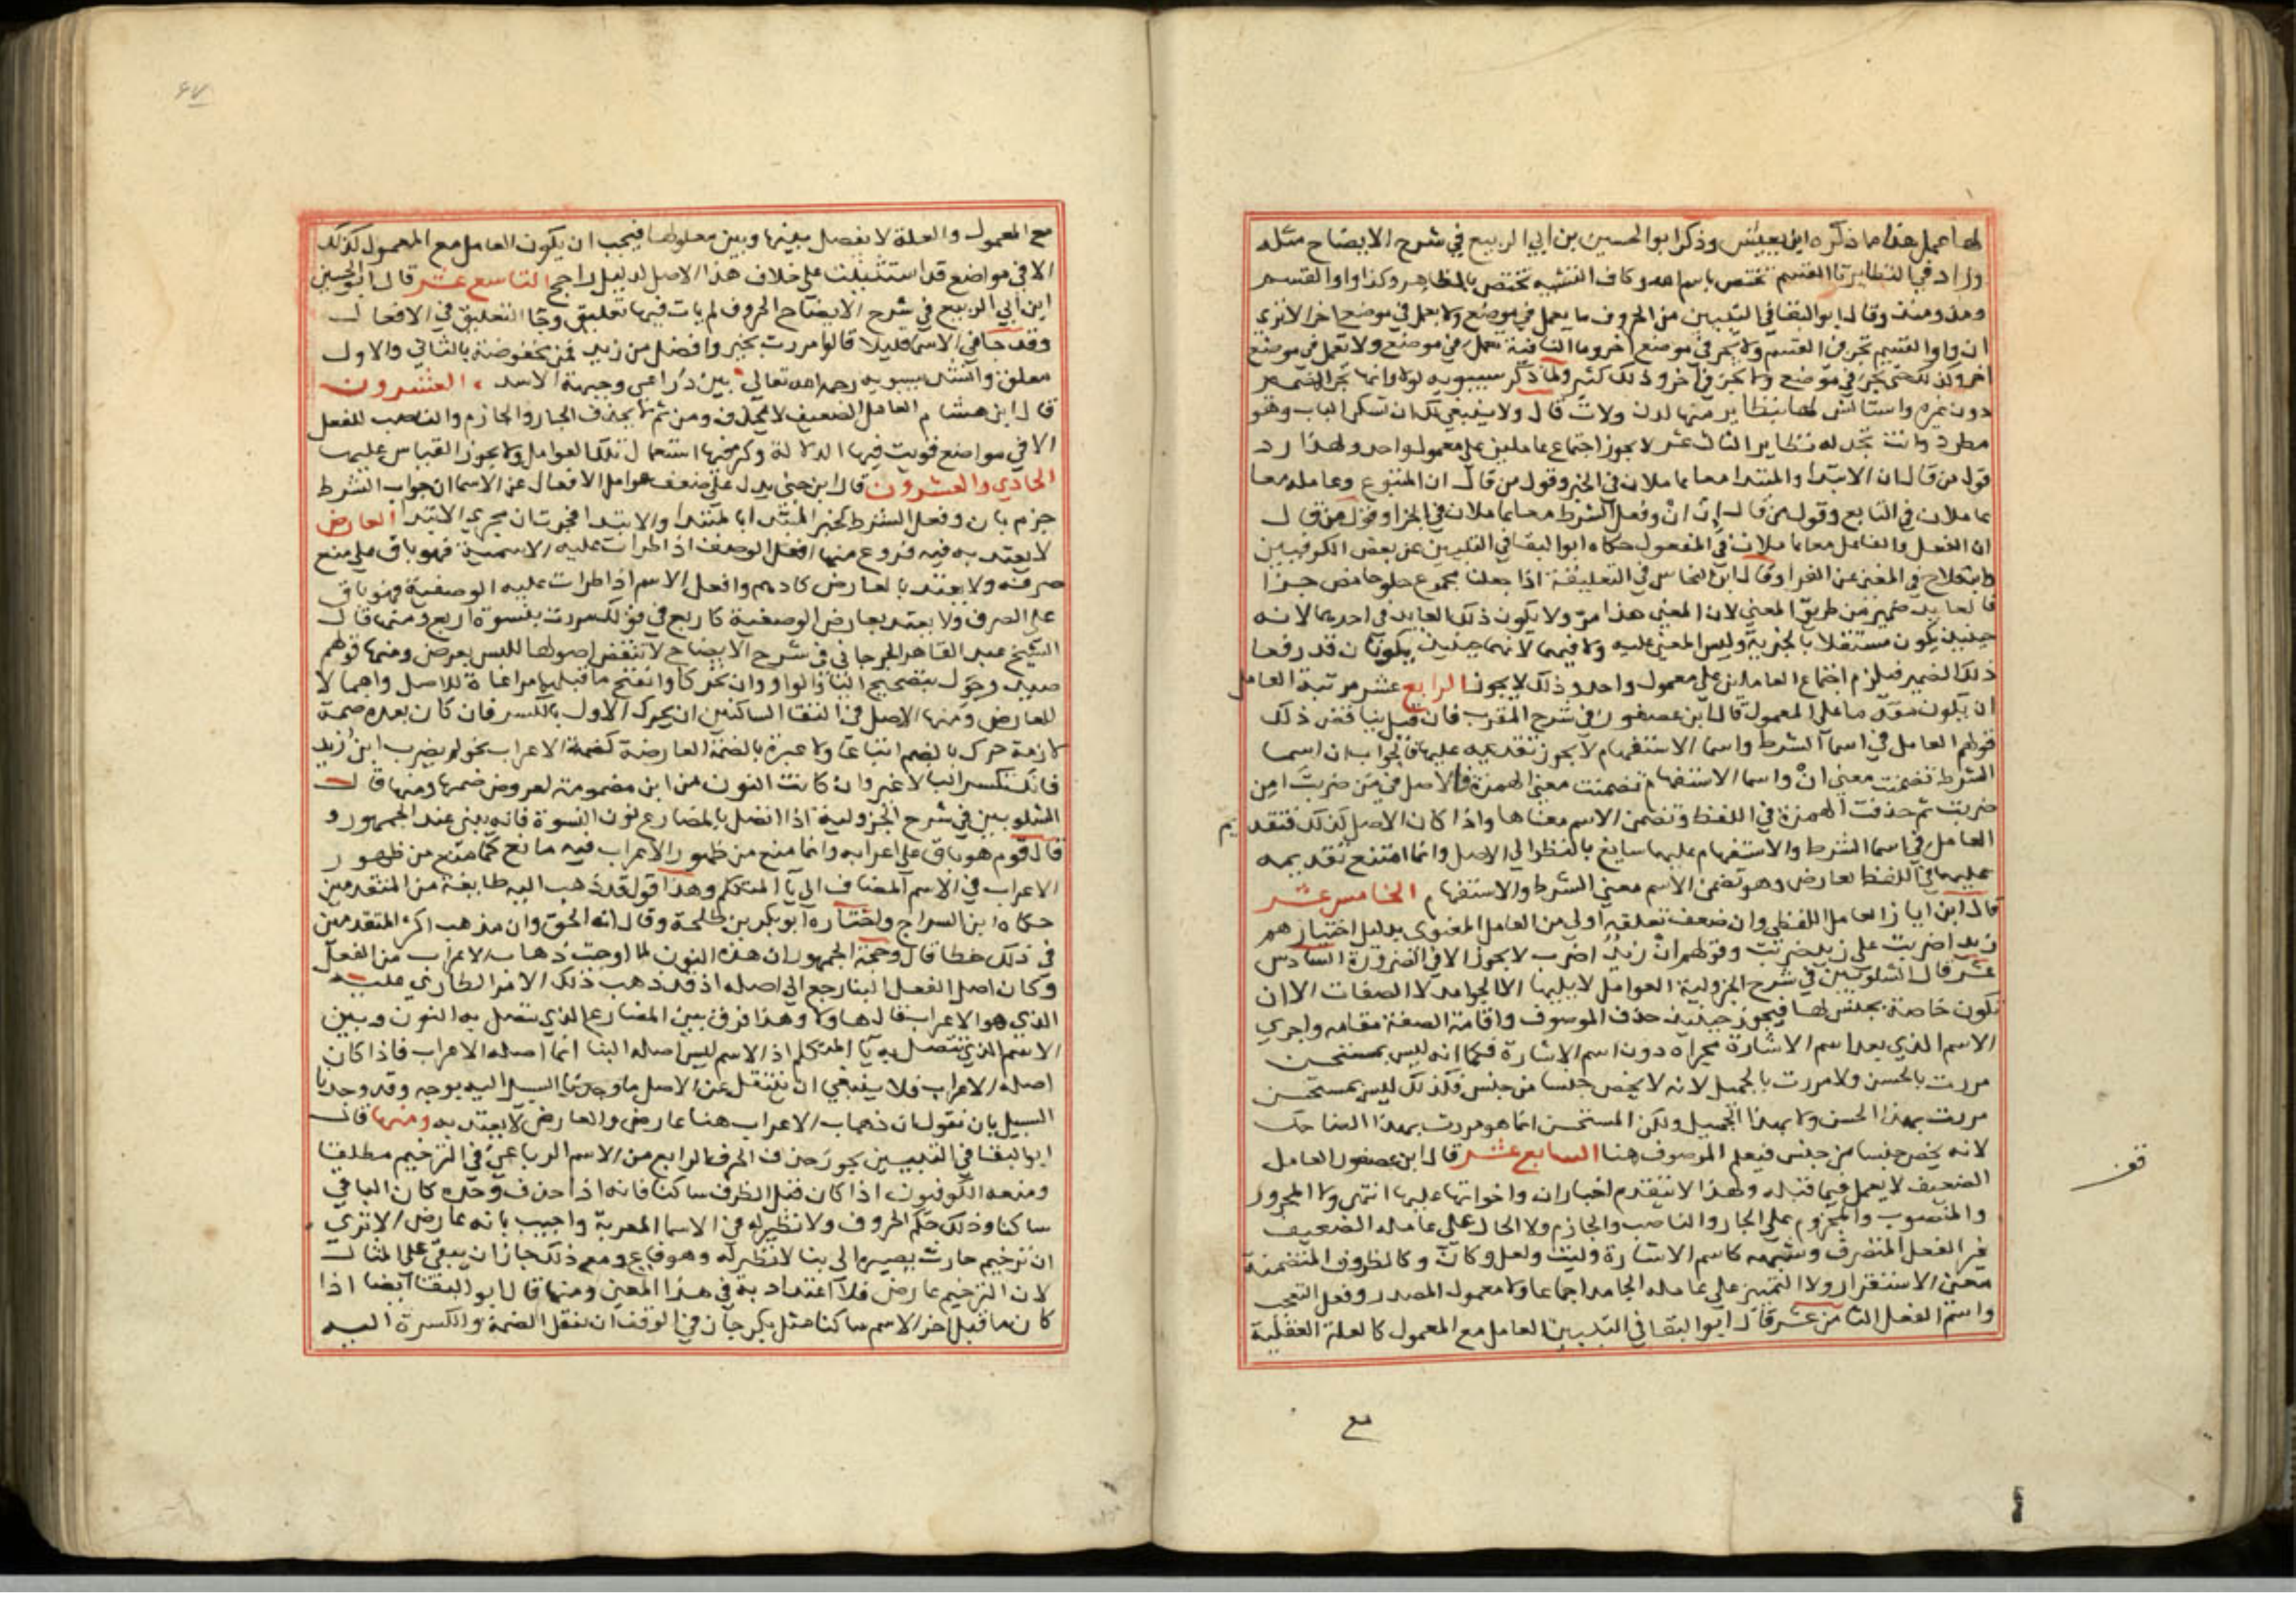 لها عمل هذا ما ذكره ابن يعيش وذكر ابو الحسين بن ابي الربيع في شرح الايضاح مثله
وزاد في النظاير تا القسم تختص باسم الله وكاف التشبيه تختص بالمظاهر وكذا واو القسم
ومذ ومنذ وقال ابو البقا في التبيين من الحروف ما يعمل في موضع ولا يعمل في موضع اخر الا تري
ان واو القسم تجر في القسم ولا تجر في موضع اخر وما النافية تعمل في موضع ولا تعمل في موضع
اخر وكذلك حتي تجر في موضع ولا تجر في اخر وذلك كثير ولما ذكر سيبويه لولا وانها تجر الضمير
دون غيره واستانس لها بنظاير منها لدن ولات قال ولا ينبغي لك ان تكسر الباب وهو
مطرد وانت تجد له نظاير الثالث عشر لا يجوز اجتماع عاملين علي معمول واحد ولهذا رد
قول من قال ان الابتدا والمبتدا معا عاملان في الخبر وقول من قال ان المتبوع وعامله معا
عاملان في التابع وقول من قال ان ان وفعل الشرط معا عاملان في الجزا وقول من قال
ان الفعل والفاعل معا عاملان في المفعول حكاه ابو البقا في التبيين عن بعض الكوفيين
وابن فلاح في المغني عن الفرا وقال ابن النحاس في التعليقة اذا جعلنا مجموع حلو حامض خبرا
فالعايد ضمير من طريق المعني لان المعني هذا مز ولا يكون ذلك العايد في احدهما لانه
حينيذ يكون مستقلا بالخبرية وليس المعني عليه ولا فيهما لانهما حينيذ يكونان قد رفعا
ذلك الضمير فيلزم اجتماع العاملين علي معمول واحد وذلك لا يجوز الرابع عشر مرتبة العامل
ان يكون مقدما علي المعمول قال ابن عصفور في شرح المقرب فان قيل يناقض ذلك
قولهم العامل في اسما الشرط واسما الاستفهام لا يجوز تقديمه عليها فالجواب ان اسما
الشرط تضمنت معني ان واسما الاستفهام تضمنت معني الهمزة فالاصل في من ضربت امن
ضربت ثم حذفت الهمزة في اللفظ وتضمن الاسم معناها واذا كان الاصل كذلك فتقديم
العامل في اسما الشرط والاستفهام عليها سايغ بالنظر الي الاصل وانما امتنع تقديمه
عليها في اللفظ لعارض وهو تضمن الاسم معني الشرط والاستفهام الخامس عشر
قال ابن اياز العامل اللفظي وان ضعف تعلقه اولي من العامل المعنوي بدليل اختيارهم
زيدا ضربت علي زيد ضربت وقولهم ان زيد اضرب لا يجوز الا في الضرورة السادس
عشر قال الشلوبين في شرح الجزولية العوامل لا يليها الا الجوامد لا الصفات الا ان
تكون خاصة بجنس لها فيجوز حينيذ حذف الموصوف واقامة الصفة مقامه واجري
الاسم الذي بعد اسم الاشارة مجراه دون اسم الاشارة فكما انه ليس بمستحسن
مررت بالحسن ولا مررت بالجميل لانه لا يخص جنسا من جنس فكذلك ليس بمستحسن
مررت بهذا الحسن ولا بهذا الجميل ولكن المستحسن انما هو مررت بهذا الضاحك
لانه يخص جنسا من جنس فيعلم الموصوف هنا السابع عشر قال ابن عصفور العامل
الضعيف لا يعمل فيما قبله ولهذا لا يتقدم اخبار ان واخواتها عليها انتهي ولا المجرور
والمنصوب والمجزوم علي الجار والناصب والجازم ولا الحال علي عامله الضعيف
غير الفعل المتصرف وشبهه كاسم الاشارة وليت ولعل وكان وكالظروف المتضمنة
معني الاستقرار ولا التمييز علي عامله الجامد اجماعا ولا معمول المصدر وفعل التعجب
واسم الفعل الثامن عشر قال ابو البقا في التبيين العامل مع المعمول كالعلة العقلية
مع
قف
٤٧
مع المعمول والعلة لا يفصل بينها وبين معلولها فيجب ان يكون العامل مع المعمول كذلك
الا في مواضع قد استثنيت علي خلاف هذا الاصل لدليل راجح التاسع عشر قال ابو الحسين
ابن ابي الربيع في شرح الايضاح الحروف لم يات فيها تعليق وجا التعليق في الافعال
وقد جا في الاسما قليلا قالوا مررت بخير وافضل من زيد فمن مخفوضة بالثاني والاول
معلق وانشد سيبويه رحمه الله تعالي بين ذراعي وجبهة الاسد العشرون
قال ابن هشام العامل الضعيف لا يحذف ومن ثم لا يحذف الجار والجازم والناصب للفعل
الا في مواضع قويت فيها الدلالة وكثر فيها استعمال تلك العوامل ولا يجوز القياس عليها
الحادي والعشرون قال ابن جني يدل علي ضعف عوامل الافعال عن الاسما ان جواب الشرط
جزم بان وفعل الشرط كخبر المبتدا بالمبتدا والابتدا فجرت ان مجري الابتدا العارض
لا يعتد به فيه فروع منها افعل الوصف اذا طرات عليه الاسمية فهو باق علي منع
صرفه ولا يعتد بالعارض كادهم وافعل الاسم اذا طرات عليه الوصفية فهو باق
علي الصرف ولا يعتد بعارض الوصفية كاربع في قولك مررت بنسوة اربع ومنها قال
الشيخ عبد القاهر الجرجاني في شرح الايضاح لا تنقض اصولها للبس يعرض ومنها قولهم
صيد وحول بتصحيح اليا والواو وان تحركا وانفتح ما قبلهما مراعاة للاصل واهمالا
للعارض ومنها الاصل في التقا الساكنين ان يحرك الاول بالكسر فان كان بعده ضمة
لازمة حرك بالضم اتباعا ولا عبرة بالضمة العارضة كضمة الاعراب نحو لم يضرب ابن زيد
فانك تكسر البا لا غير وان كانت النون من ابن مضمومة لعروض ضمها ومنها قال
الشلوبين في شرح الجزولية اذا اتصل بالمضارع نون النسوة فانه يبني عند الجمهور و
قال قوم هو باق علي اعرابه وانما منع من ظهور الاعراب فيه مانع كما منع من ظهور
الاعراب في الاسم المضاف الي يا المتكلم وهذا قول قد ذهب اليه طايفة من المتقدمين
حكاه ابن السراج واختاره ابو بكر بن طلحة وقال انه الحق وان مذهب اكثر المتقدمين
في ذلك خطا قال وحجة الجمهور ان هذه النون لما اوجبت ذهاب الاعراب من الفعل
وكان اصل الفعل البنا رجع الي اصله اذ قد ذهب ذلك الامر الطاري عليه
الذي هو الاعراب قال هاولا وهذا فرق بين المضارع الذي تتصل به النون وبين
الاسم الذي تتصل به يا المتكلم اذ الاسم ليس اصله البنا انما اصله الاعراب فاذا كان
اصله الاعراب فلا ينبغي ان ننتقل عن الاصل ما وجدنا السبيل اليه بوجه وقد وجدنا
السبيل بان نقول ان ذهاب الاعراب هنا عارض والعارض لا يعتد به ومنها قال
ابو البقا في التبيين يجوز حذف الحرف الرابع من الاسم الرباعي في الترخيم مطلقا
ومنعه الكوفيون اذا كان قبل الطرف ساكنا فانه اذا حذف وحده كان الباقي
ساكنا وذلك حكم الحروف ولا نظير له في الاسما المعربة واجيب بانه عارض الا تري
ان ترخيم حارث يصيره الي بنا لا نظير له وهو فاع ومع ذلك جاز ان يبقي علي المثال
لان الترخيم عارض فلا اعتداد به في هذا المعني ومنها قال ابو البقا ايضا اذا
كان ما قبل اخر الاسم ساكنا مثل بكر جاز في الوقف ان تنقل الضمة والكسرة اليه